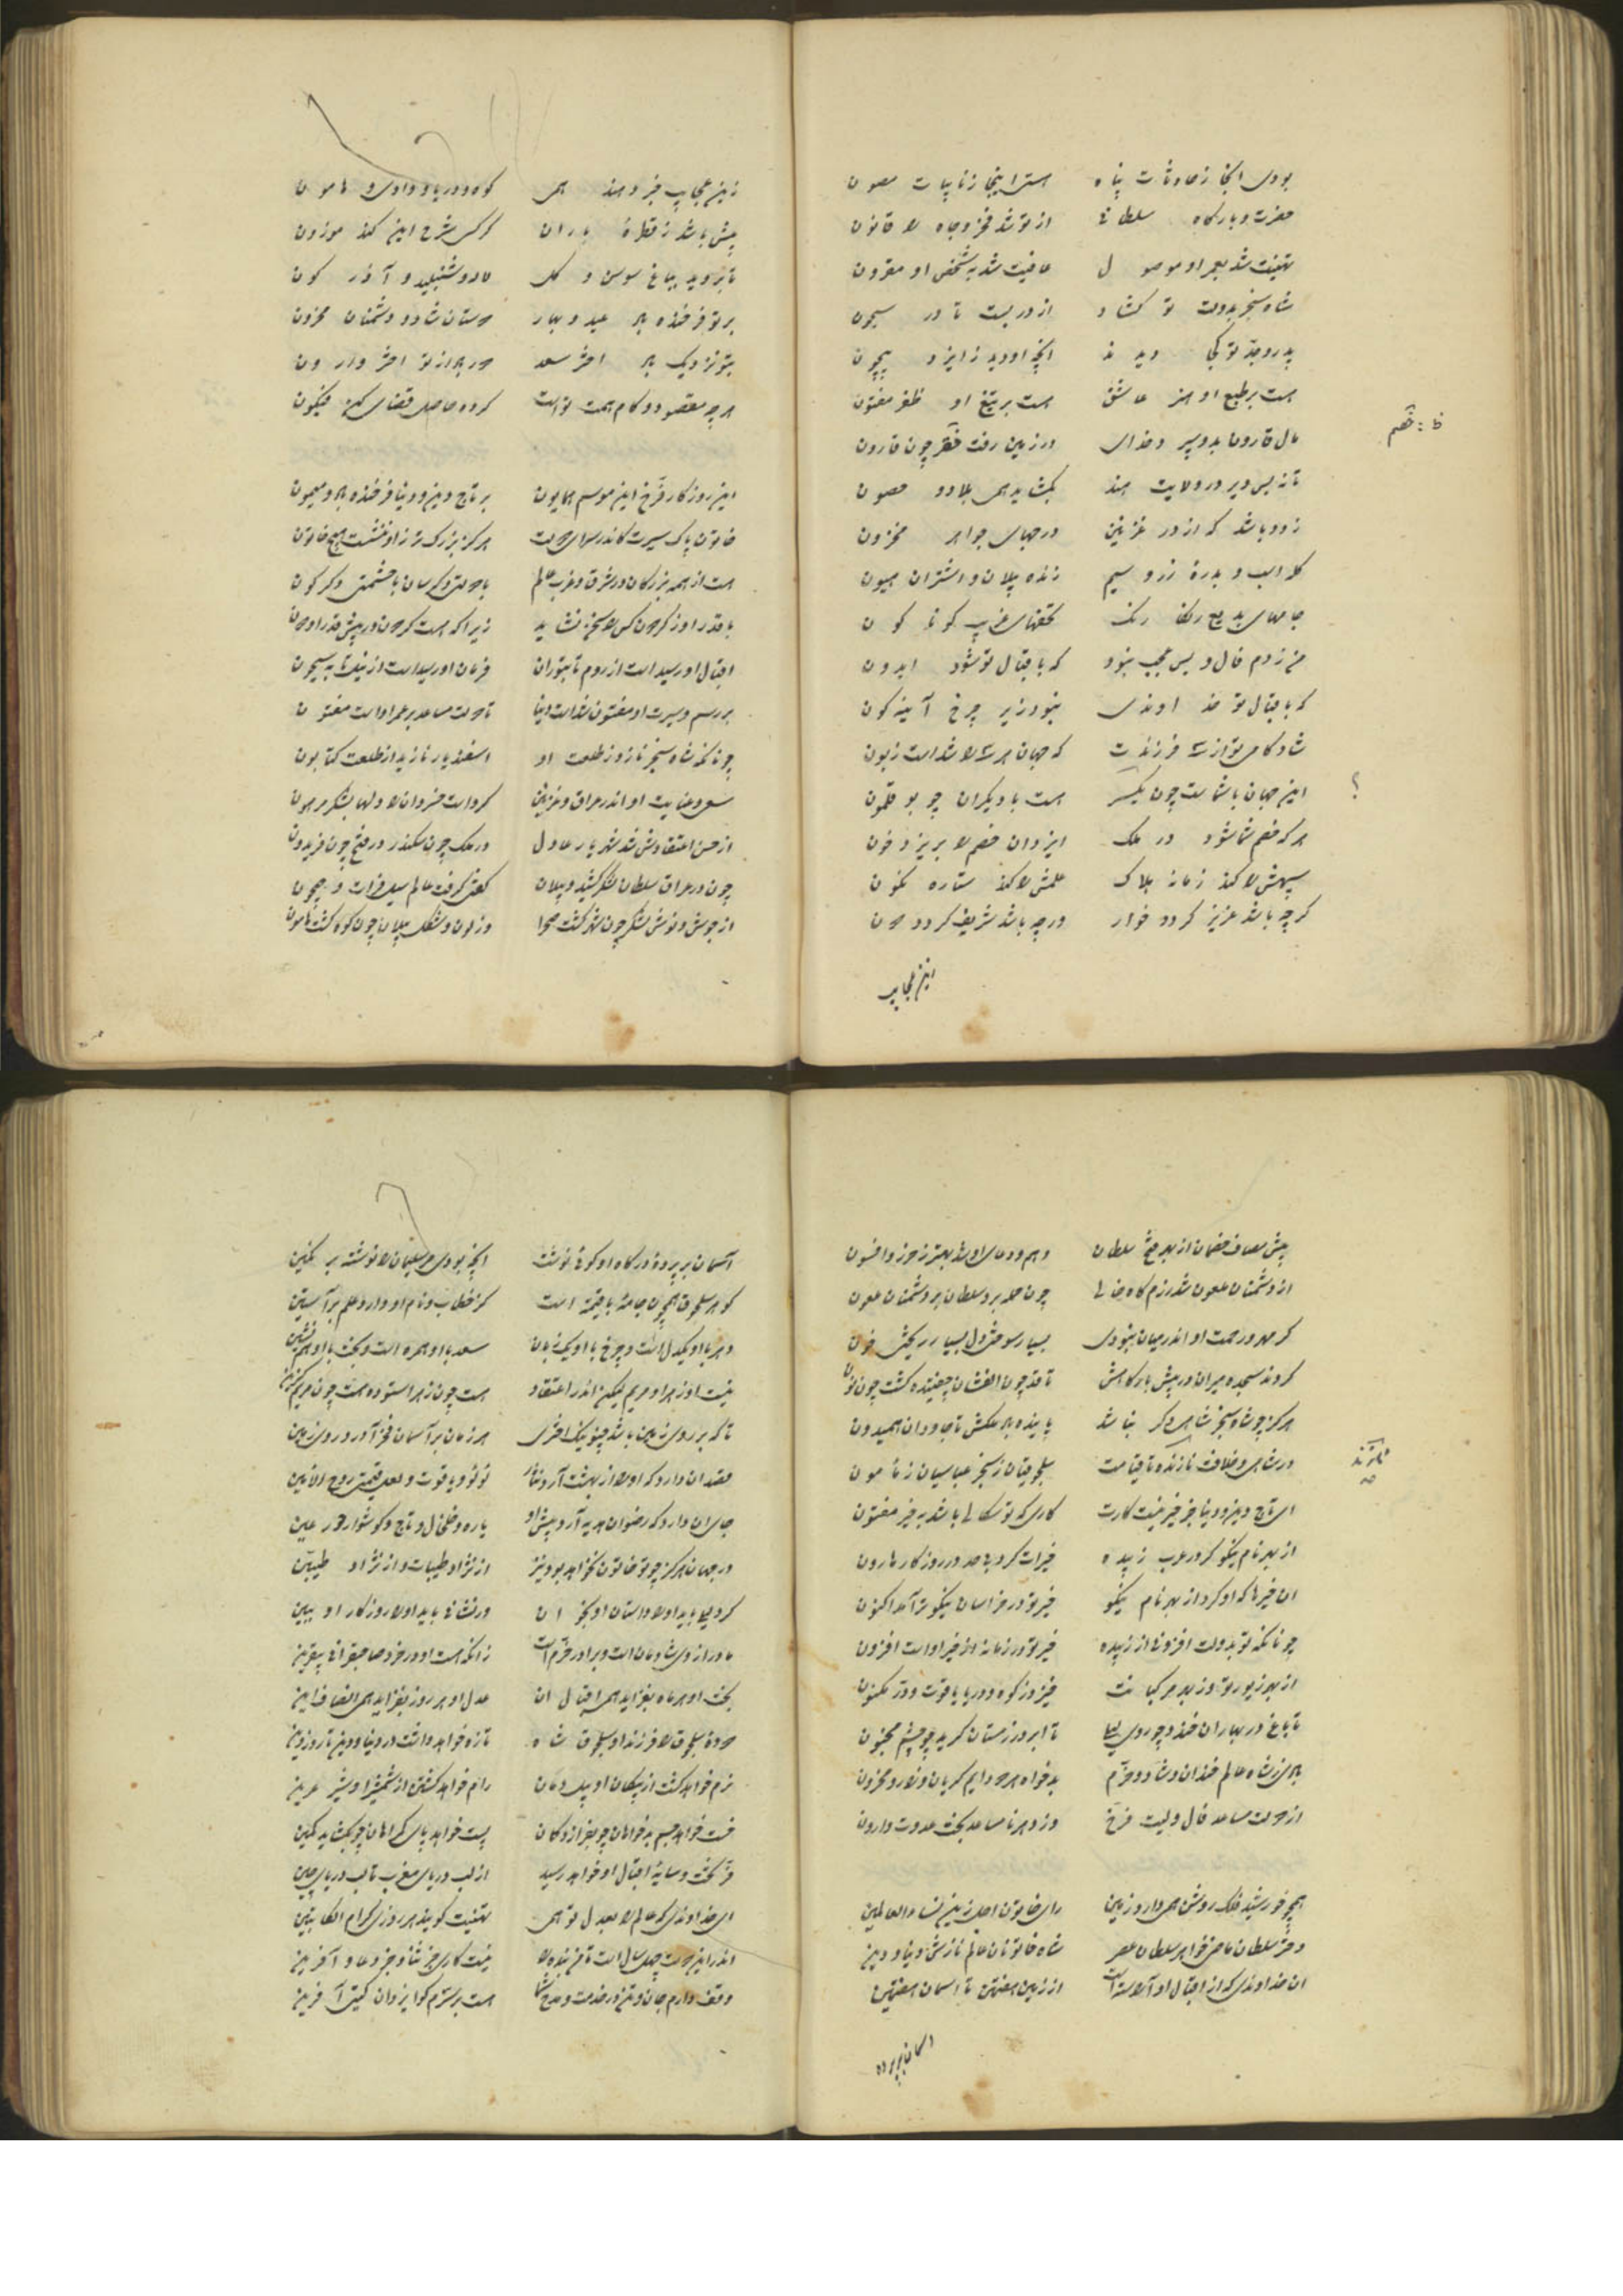 بودی آنجا ز حادثات پناه هست اینجا ز نایبات مصون
حضرت و بارگاه سلطانی از تو شد فخر و جاه را قانون
تهنیت شد بعمر او موصول عافیت شد به شخص او مقرون
شاه سنجر بدولت تو گشاد از در بست تا در سیحون
پدر و جد تو کجا دیدند آنچه او دید ز ایزد بیچون
هست بر طبع او هنر عاشق هست بر تیغ او ظفر مفتون
ظ : خصم
مال قارون بدو سپرد خدای در زمین رفت خصم چون قارون
تا نه بس دیر در ولایت هند بگشاید همی بلاد و حصون
زود باشد که از در غزنین درجهای جواهر مخزون
گله اسب و بدرهٔ زر و سیم زنده پیلان و اشتران هیون
جامهای بدیع رنگارنگ تحفهای غریب گوناگون
من زدم فال و بس عجب نبود که باقبال تو شود ایدون
که باقبال تو خداوندی نبود زیر چرخ آینه گون
شادکامی تو از سه فرزندت که جهان هر سه را شدست زبون
این جهان با شماست چون یکسر هست با دیگران چو بوقلمون
؟
هر که خصم شما شود در ملک ایزدان خصم را بریزد خون
سپهش را کند زمانه هلاک علمش را کند ستاره نگون
گرچه باشد عزیز گردد خوار ورچه باشد شریف گردد دون
این عجایب
زین عجایب خبر دهند همی کوه و دریا و وادی و هامون
بیش باشد ز قطرهٔ باران گر کسی شرح این کند موزون
تا بروید بباغ سوسن و گل لاله و شنبلید و آذرگون
بر تو فرخنده باد عید و بهار دوستان شاد و دشمنان محزون
بتو نزدیک باد اختر سعد دور باد از تو اختر وارون
هرچه مقصود و کام همت تست کرده حاصل قضای کن فیکون
این روزگار فرخ این موسم همایون بر تاج دین و دنیا فرخنده باد و میمون
خاتون پاک سیرت کاندر سرای دولت هرگز بزرگتر زاو ننشست هیچ خاتون
هست از همه بزرگان در شرق و غرب عالم با دولتی دگرسان با حشمتی دگرگون
با قدر او ز گردون کس را سخن نشاید زیرا که هست گردون در پیش قدر او دون
اقبال او رسیدست از روم تا بتوران فرمان او رسیدست از نیل تا به سیحون
بر رسم و سیرت او مفتون شدست دنیا تا دولت مساعد بر عمر اوست مفتون
چونانکه شاه سنجر نازد ز طلعت او اسفندیار نازید از طلعت کتابون
سعی و عنایت او اندر عراق و غزنین کردست خسروان را دلها بشکر مرهون
از حسن اعتقادش شد شهریار عادل در ملک چون سکندر در فتح چون فریدون
چون در عراق سلطان لشکر کشید و پیلان گفتی گرفت عالم سیل فرات و جیحون
از جوشن و ز جوش لشکر چون شهر گشت صحرا وز لون و شکل پیلان چون کوه گشت هامون
پیش مصاف خصمان از بهر فتح سلطان وهم و دعای او شد بهتر ز حرز و افسون
از دشمنان ملعون شد رزمگاه خالی چون حمله برد سلطان بر دشمنان ملعون
گر مهر و رحمت او اندر میان نبودی بسیار سوختی دل بسیار ریختی خون
کردند سجده میران در پیش بارگاهش تا قد چون الفشان چفتیده گشت چون نون
هرگز چو شاه سنجر شاهی دگر نباشد پاینده باد ملکش تا جاودان همیدون
در شاهی و خلافت نازنده تا قیامت سلجوقیان ز سنجر عباسیان ز مامون
ای تاج دین و دنیا جز خیر نیست کارت کاری که تو سگالی باشد به خیر مفتون
از بهر نام نیکو کرد در عرب زبیده خیرات گرد بی حد در روزگار هارون
آن خیرها که او کرد از بهر نام نیکو خیر تو در خراسان نیکوتر آمد اکنون
چونانکه تو بدولت افزونی از زبیده خیر تو در زمانه از خیر اوست افزون
از بهر زیور تو وز بهر مرکبانت خیزد ز کوه و دریا یاقوت و در مکنون
تا باغ در بهاران خندد چو روی لیلی تا ابر در زمستان گرید چو چشم مجنون
بادی ز شاه عالم خندان و شاد و خرم بدخواه هر دو دایم گریان و زار و محزون
از دولت مساعد فال ولیت فرخ وز دهر نامساعد بخت عدوت وارون
همچو خورشید فلک روشن همی دارد زمین رای خاتون اجل زین نساء العالمین
دختر سلطان ماضی خواهر سلطان عصر شاه خاتونان عالم نازش دنیا و دین
آن خداوندی که از اقبال او آراستست از زمین هفتمین تا آسمان هفتمین
آسمان بر پرده
آسمان بر پردهٔ درگاه او گوئی نوشت آنچه بودی مر سلیمان را نوشته بر نگین
گوهر سلجوق همچون جامهٔ بافیمه است کز خطاب و نام او دارد علم بر آستین
دهر با او یکدل است و چرخ با او یک زبان سعد با او همره است و بخت با او همنشین
نیست او زهرا و مریم لیکن اندر اعتقاد هست چون زهرا ستوده هست چون مریم گزین
تا که بر روی زمین باشد چنو نیک اختری هر زمان بر آسمان فخر آورد روی زمین
عقد آن دارد که او را از بهشت آرد نثار لؤلؤ و یاقوت و لعل قیمتی روح الامین
جای آن دارد که رضوان هدیه آرد پیش او یاره و خلخال و تاج و گوشوار حور عین
در جهان هرگز چو تو خاتون نخواهد بود نیز از نژاد طیبات و از نژاد طیبین
گر دلیلی باید او را داستان او بخوان ور نشانی باید او را روزگار او ببین
مادر از وی شادمانست و برادر خرم است زانکه هست او درخور صاحبقرانی بیقرین
بخت او هر ماه بفزاید همی اقبال آن عدل او هر روز بفزاید همی انصاف این
دودهٔ سلجوق را فرزند او سلجوق شاه تازه خواهد داشت در دنیا و دین تا روز دین
نرم خواهد گشت از پیکان او پیل دمان رام خواهد گشتن از شمشیر او شیر عرین
خست خواهد جسم بدخواهان چو تیر از کمان بست خواهد پای گمراهان چو بگشاید کمین
فر بخت و سایهٔ اقبال او خواهد رسید از لب دریای مغرب تا لب دریای چین
ای خداوندی که عالم را بعدل تو همی تهنیت گویند هر روزی کرام الکاتبین
اندر این دولت چهل سال است تا من بنده را نیست کاری جز ثنا و جز دعا و آفرین
وقف دارم جان و تن در خدمت و مدح شما هست بر سرم گوا یزدان گیتی آفرین